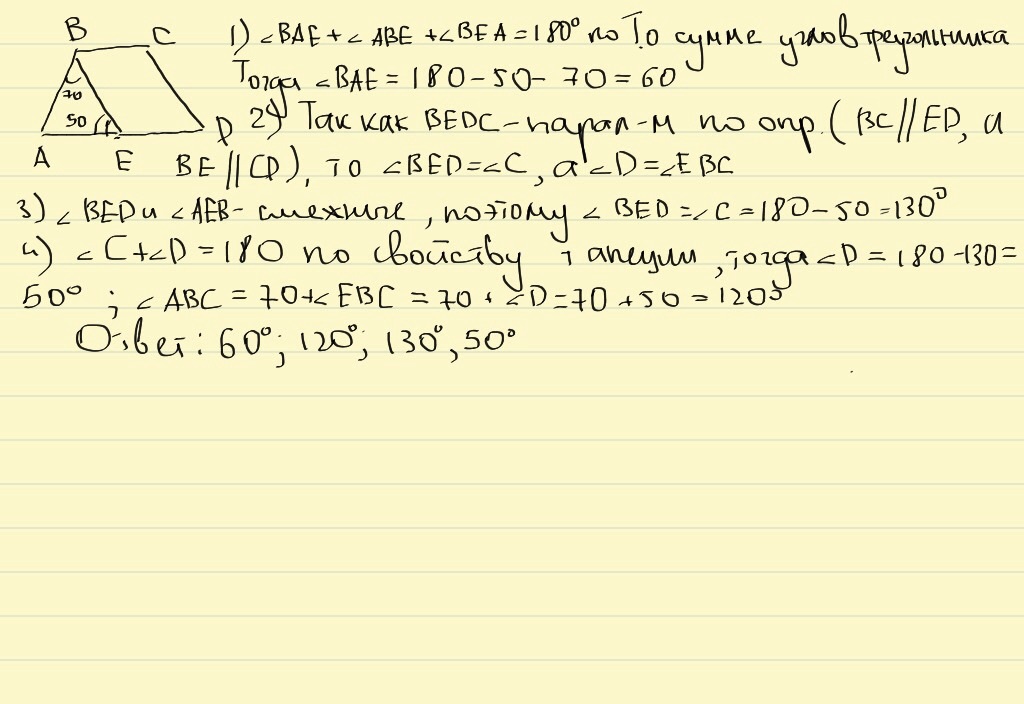 B C 1) ∠BAE + ∠ABE + ∠BEA = 180° по Т.о сумме углов треугольника
70 Тогда ∠BAE = 180 - 50 - 70 = 60
50 D 2) Так как BEDC - парал-м по опр. (BC || ED, а
A E BE || CD), то ∠BED = ∠C, а ∠D = ∠EBC
3) ∠BED и ∠AEB - смежные, поэтому ∠BED = ∠C = 180 - 50 = 130°
4) ∠C + ∠D = 180 по свойству трапеции, тогда ∠D = 180 - 130 =
50° ; ∠ABC = 70 + ∠EBC = 70 + ∠D = 70 + 50 = 120°
Ответ: 60°; 120°; 130°, 50°